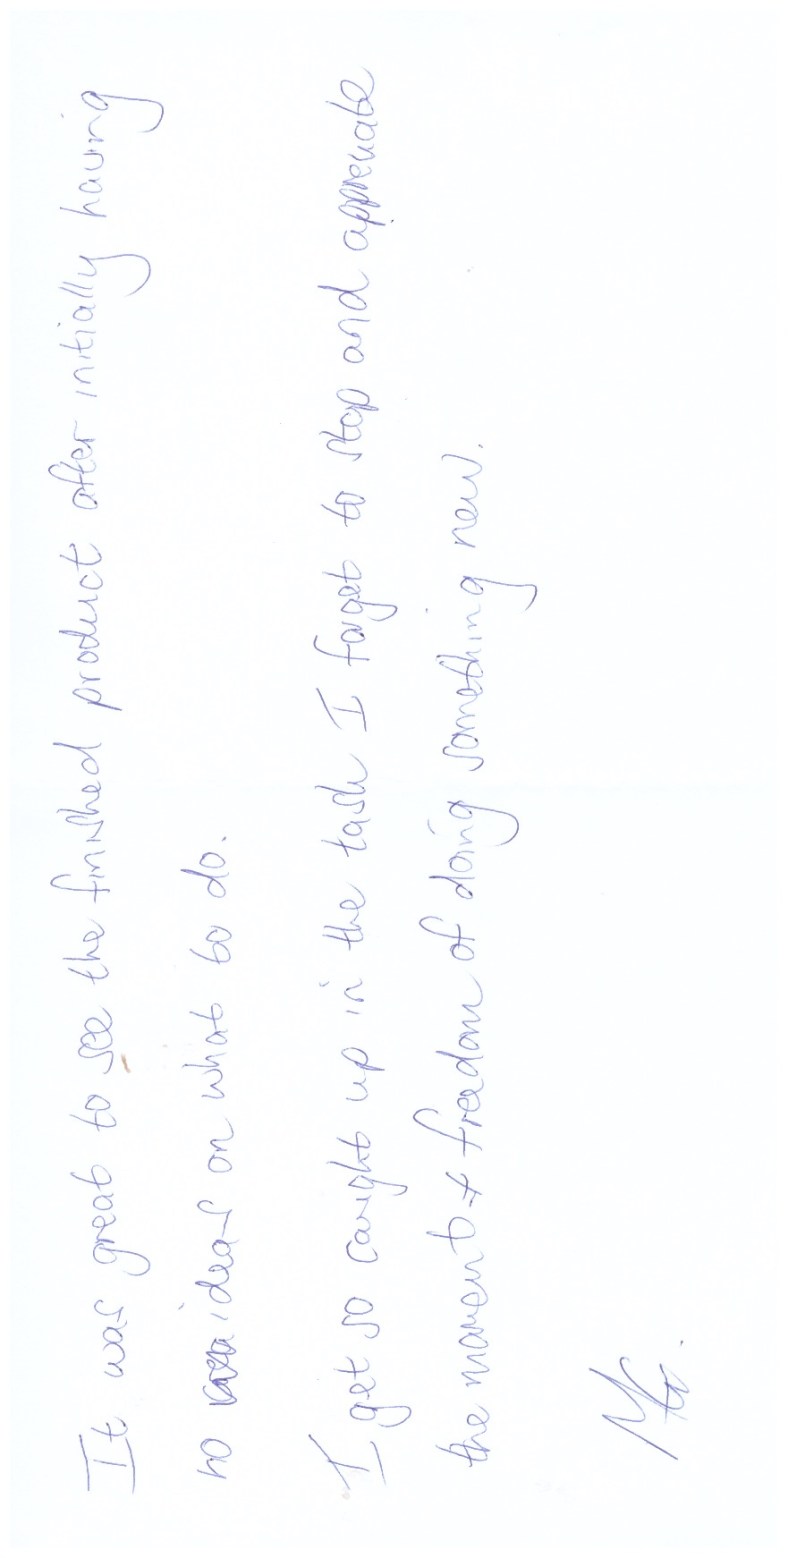 It was great to see the finished product after initially having
no ideas on what to do.
I get so caught up in the task I forget to stop and appreciate
the moment + freedom of doing something new.